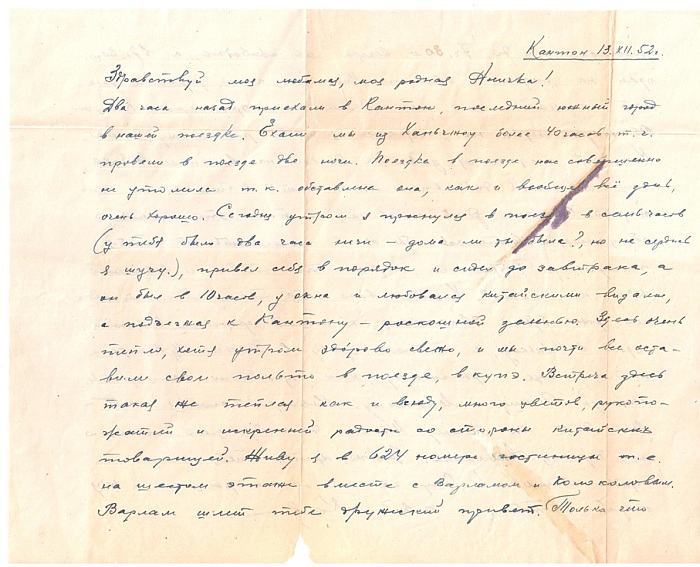 Кантон 13.XII.52г.
Здравствуй моя любимая, моя родная Аничка!
Два часа назад приехали в Кантон, последний южный город
в нашей поездке. Ехали мы из Ханьчжоу более 40 часов т.е.
провели в поезде две ночи. Поездка в поезде нас совершенно
не утомила т.к. обставлена она, как и вообще всё здесь,
очень хорошо. Сегодня утром я проснулся в поезде в семь часов
(у тебя было два часа ночи – дома ли ты была?, но не сердись
я шучу.), привел себя в порядок и сидел до завтрака, а
он был в 10 часов, у окна и любовался китайскими видами,
а подъезжая к Кантону – роскошной зеленью. Здесь очень
тепло, хотя утром здорово свежо, и мы почти все оста-
вили свои пальто в поезде, в купэ. Встреча здесь
такая же теплая как и всюду, много цветов, рукопо-
жатий и искренней радости со стороны китайских
товарищей. Живу я в 624 номере гостиницы т.е.
на шестом этаже вместе с Варламом и Колоколовым.
Варлам шлет тебе дружеский привет. Только что